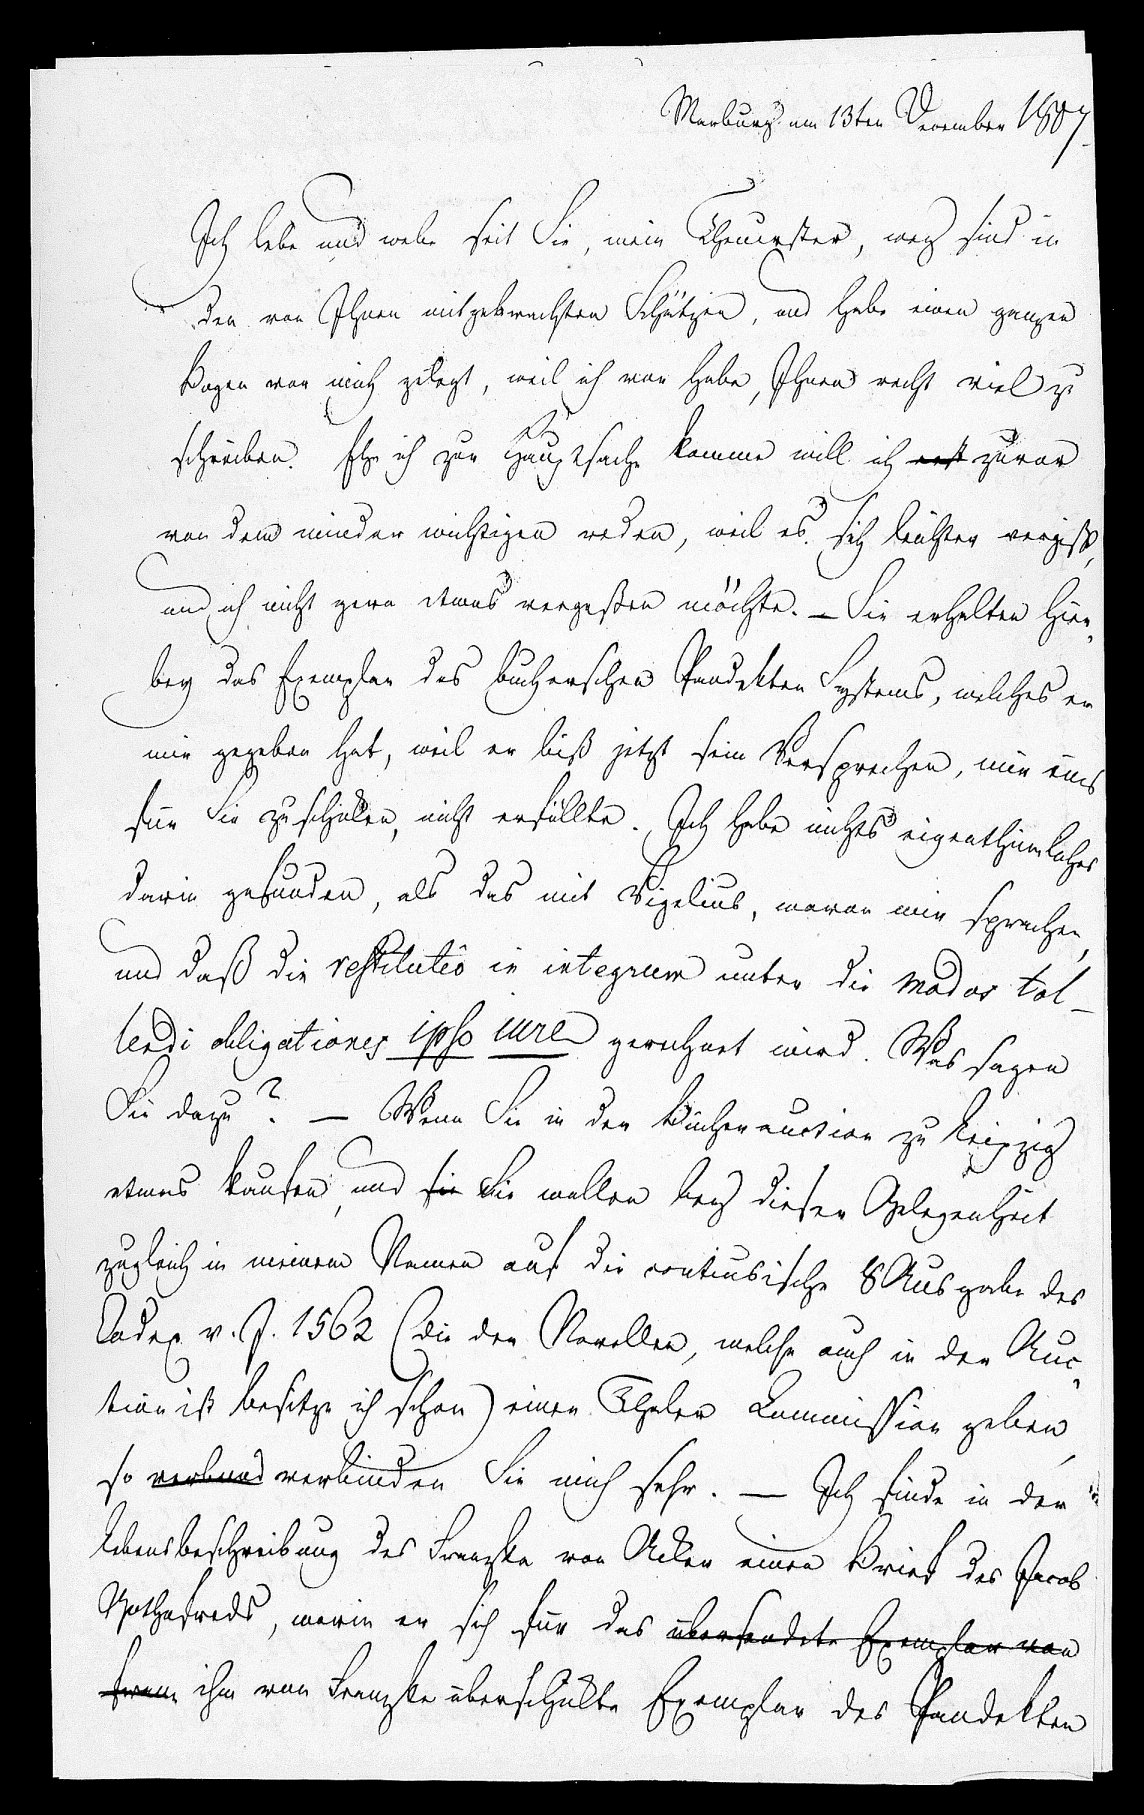 Marburg am 13ten December 1807.
Ich lebe und webe seit Sie, mein Theuerster, weg sind in
den von Ihnen mitgebrachten Schätzen, und habe einen ganzen
Bogen vor mich gelegt, weil ich vor habe, Ihnen recht viel zu
schreiben. Ehe ich zur Hauptsache komme will ich erst zuvor
von dem minder wichtigen reden, weil es sich leichter vergißt,
und ich nicht gern etwas vergeßen möchte. – Sie erhalten hier-
bey das Exemplar des bucherschen Pandekten Systems, welches er
mir gegeben hat, weil er biß jetzt sein Versprechen, mir eins
für Sie zu schicken, nicht erfüllte. Ich habe nichts eigenthümliches
darin gefunden, als das mit Vigelius, wovon wir sprachen,
und daß die restitutio in integrum unter die modos tol-
lendi obligationes ipso iure gerechnet wird. Was sagen
Sie dazu? – Wenn Sie in der Bücherauction zu Leipzig
etwas kaufen, und sie Sie wollen bey dieser Gelegenheit
zugleich in meinem Namen auf die contiusische 8 Ausgabe des
Codex v. J. 1562 (die der Novellen, welche auch in der Auc-
tion ist besitze ich schon) einen Thaler Commission geben,
so verbind verbinden Sie mich sehr. – Ich finde in der
Lebensbeschreibung des Franzke von Acker einen Brief des Jacob
Gothofreds, worin er sich für das übersendete Exemplar von
Franz ihm von Franzke überschickte Exemplar des Pandekten